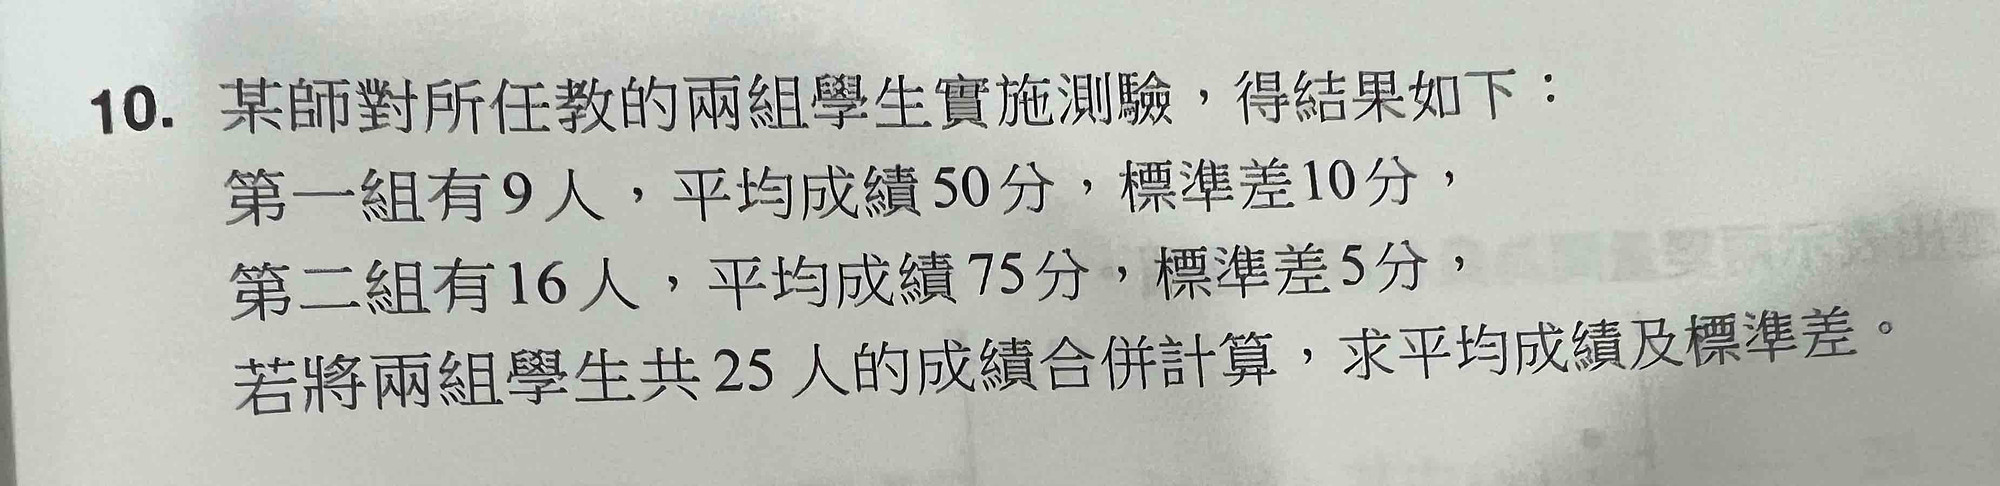 10. 某師對所任教的兩組學生實施測驗，得結果如下：
第一組有9人，平均成績50分，標準差10分，
第二組有16人，平均成績75分，標準差5分，
若將兩組學生共25人的成績合併計算，求平均成績及標準差。